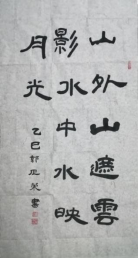 山外山遮雲
影水中水映
月光
乙巳
書